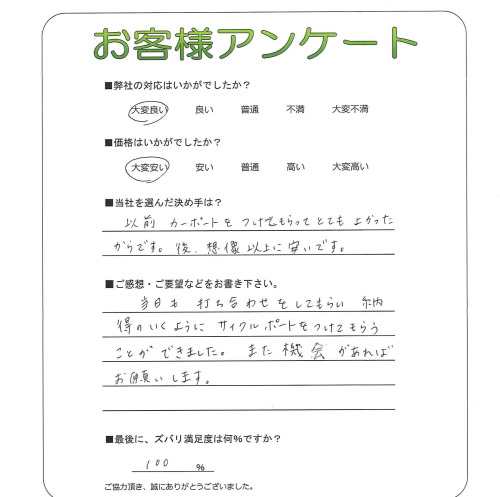 お客様アンケート
■弊社の対応はいかがでしたか？
大変良い 良い 普通 不満 大変不満
■価格はいかがでしたか？
大変安い 安い 普通 高い 大変高い
■当社を選んだ決め手は？
以前 カーポートを つけてもらって とても よかった
からです。後、想像以上に安いです。
■ご感想・ご要望などをお書き下さい。
当日も 打ち合わせをしてもらい 納
得のいくように サイクルポートをつけてもらう
ことができました。また機会があれば
お願いします。
■最後に、ズバリ満足度は何%ですか？
100 %
ご協力頂き、誠にありがとうございました。